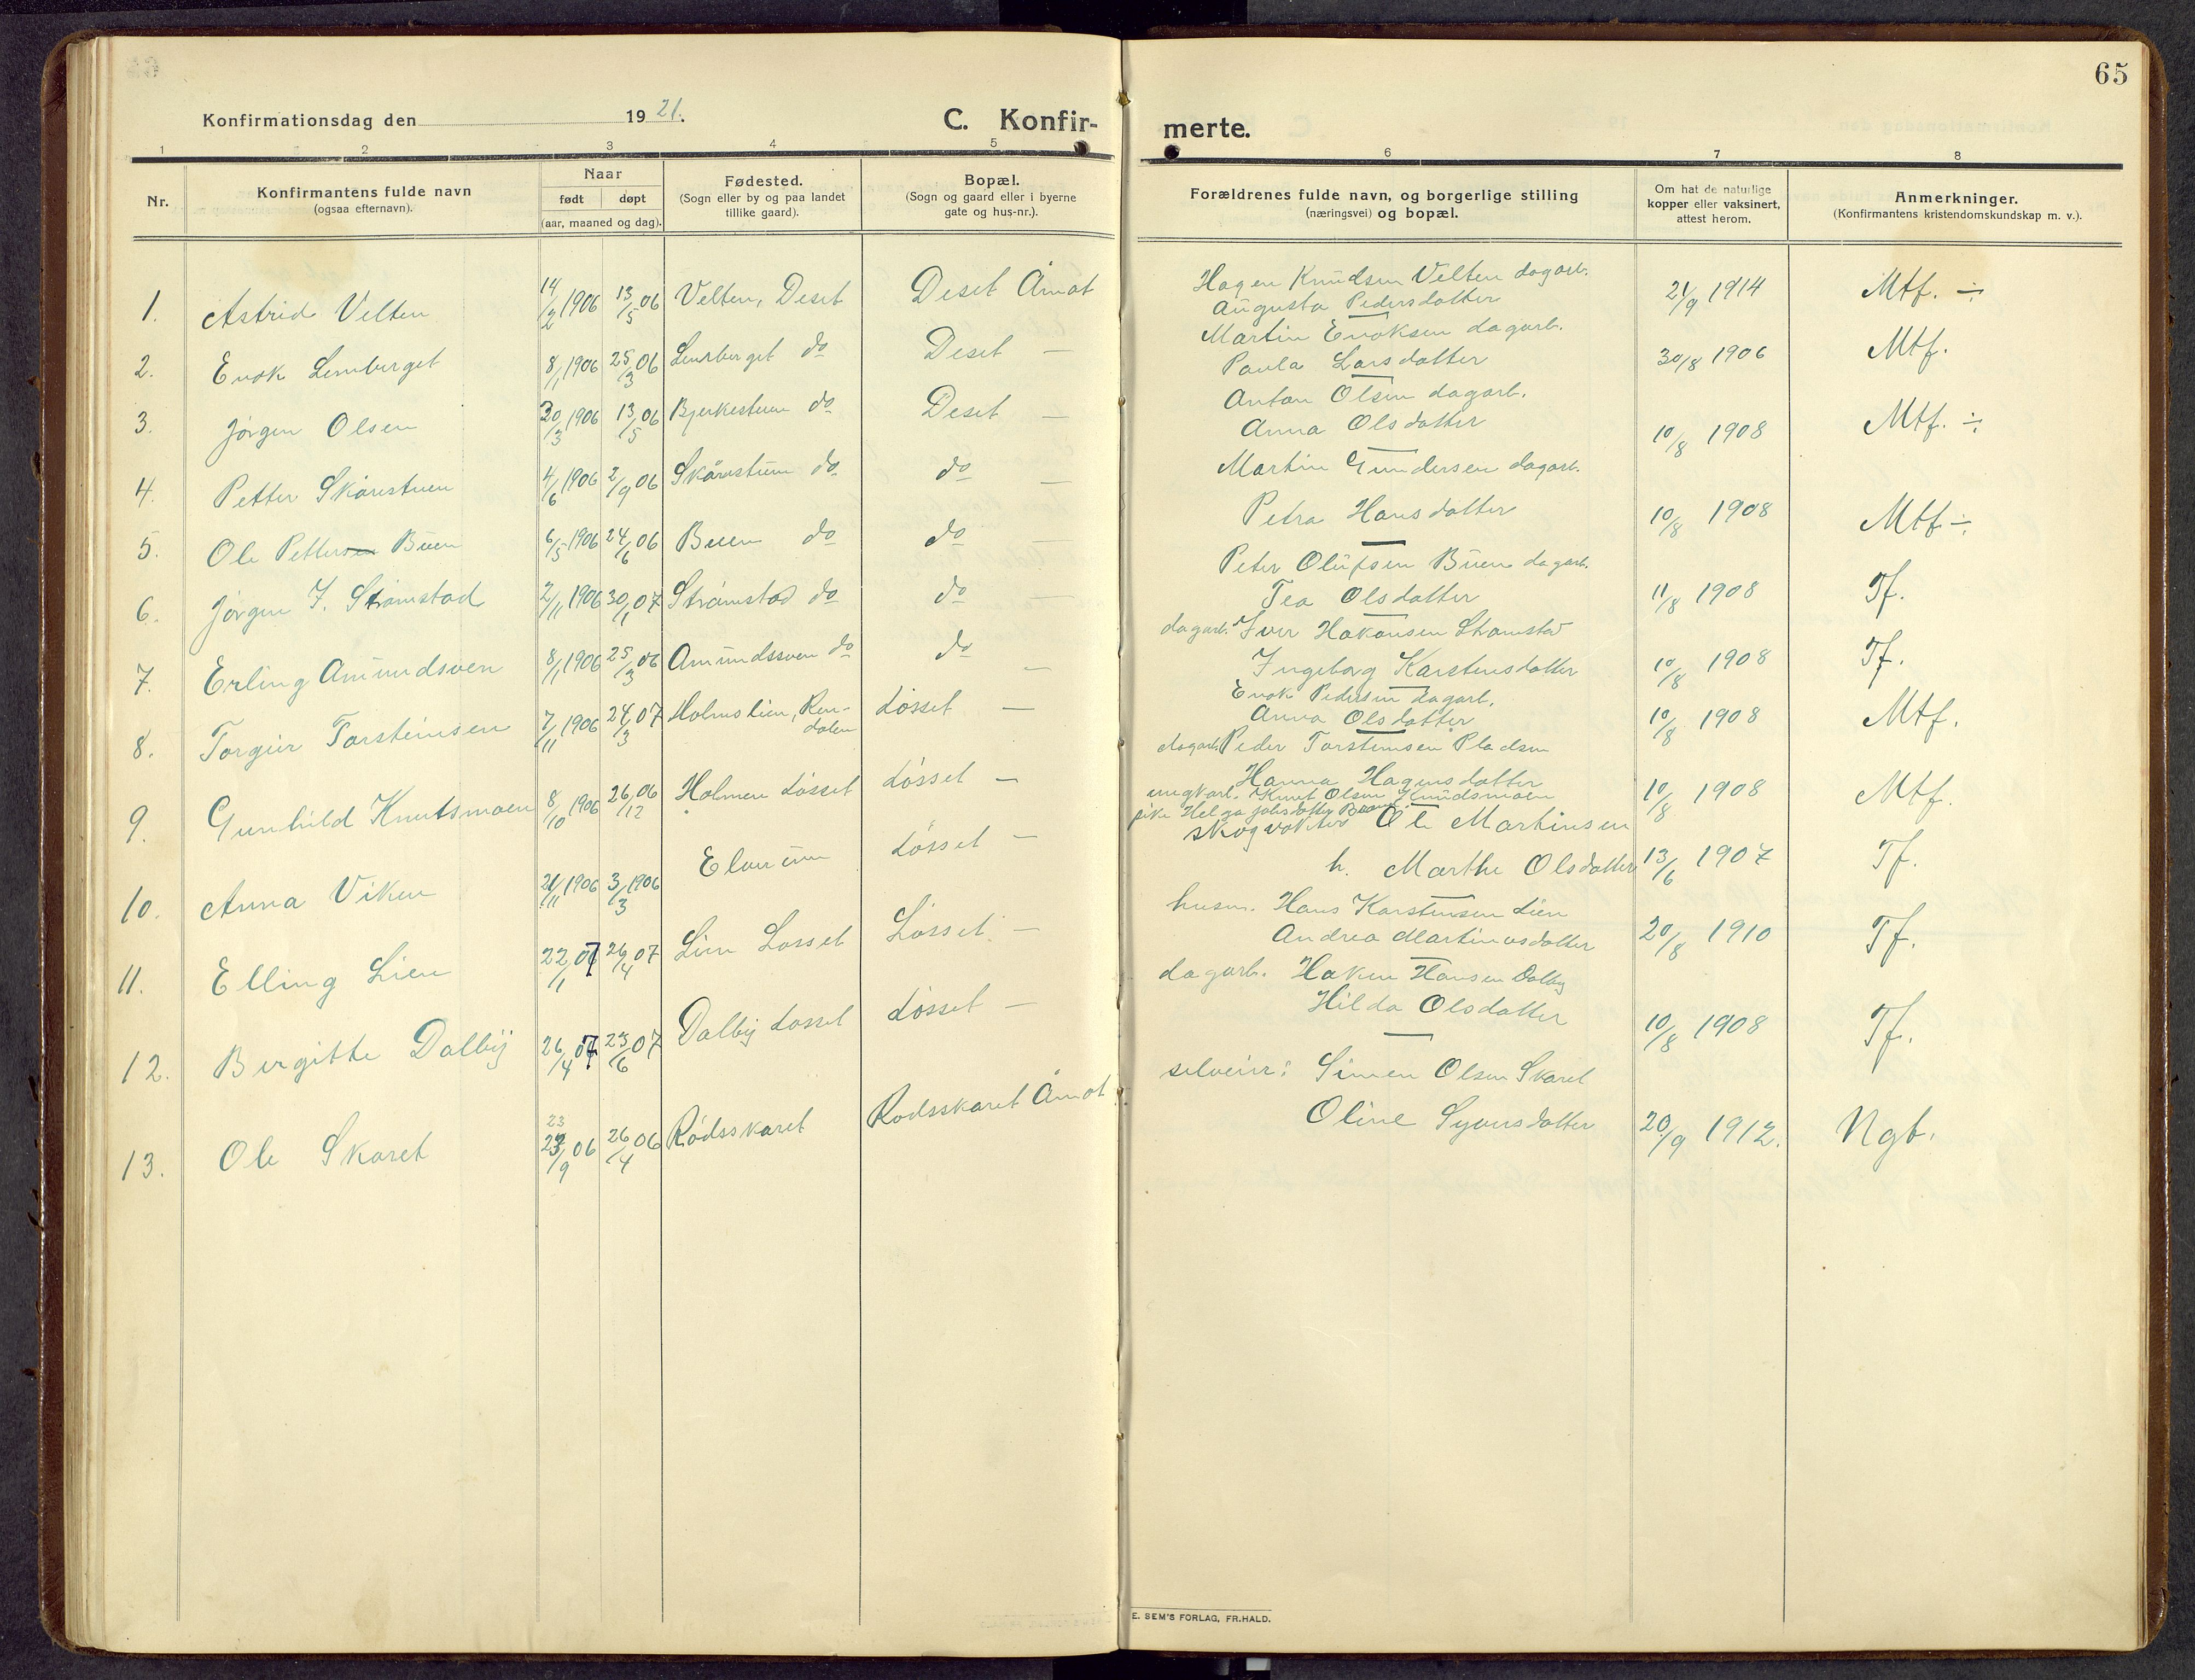 65
Konfirmationsdag den 1921.
C. Konfir-
merte.
1 2 3 4 5 6 7 8
Nr.
Konfirmantens fulde navn
(ogsaa efternavn).
Naar
født døpt
(aar, maaned og dag).
Fødested.
(Sogn eller by og paa landet
tillike gaard).
Bopæl.
(Sogn og gaard eller i byerne
gate og hus-nr.).
Forældrenes fulde navn, og borgerlige stilling
(næringsvei) og bopæl.
Om hat de naturlige
kopper eller vaksinert,
attest herom.
Anmerkninger.
(Konfirmantens kristendomskundskap m. v.).
1. Astrid Velten 14/2 1906 13/5 06 Velten, Deset Deset Åmot
Hagen Knudsen Velten dagarb.
Augusta Pedersdatter
21/9 1914 Mtf. ÷
2. Enok Lemberget 8/1 1906 25/3 06 Lemberget do Deset —
Martin Enoksen dagarb.
Paula Larsdatter
30/8 1906 Mtf.
3. Jørgen Olsen 30/3 1906 13/5 06 Bjerkestuen do Deset —
Anton Olsen dagarb.
Anna Olsdatter
10/8 1908 Mtf. ÷
4. Petter Skårestuen 4/6 1906 2/9 06 Skårestuen do do —
Martin Gundersen dagarb.
Petra Hansdatter
10/8 1908 Mtf ÷
5. Ole Petter Buen 6/5 1906 24/6 06 Buen do do —
Peter Olufsen Buen dagarb.
Tea Olsdatter
11/8 1908 Tf.
6. Jørgen I. Strømstad 2/11 1906 30/1 07 Strømstad do do —
dagarb. Iver Hakonsen Strømstad
Ingeborg Karstensdatter
10/8 1908 Tf.
7. Erling Amundsven 8/1 1906 25/3 06 Amundssven do do —
Enok Pedersen dagarb.
Anna Olsdatter
10/8 1908 Mtf.
8. Torgeir Torsteinsen 7/11 1906 24/3 07 Holmslien, Ren-
dalen Løsset —
dagarb. Peder Torsteinsen Pladsen
Hanna Hagensdatter
10/8 1908 Mtf.
9. Gunhild Knutsmoen 8/10 1906 26/12 06 Holmen Løsset Løsset —
ungkarl. Knut Olsen Knudsmoen
pike Helga Johsdatter
13/6 1907 Tf.
10. Anna Viken 21/11 1906 3/3 1906 Elverum Løsset —
skogvokter Ole Martinsen
h. Marthe Olsdatter
11. Elling Lien 22/1 07 26/4 07 Lien Løsset Løsset —
husm. Hans Karstensen Lien
Andrea Martinusdatter
20/8 1910 Tf.
12. Bergitte Dalby 26/4 07 23/6 07 Dalby Løsset Løsset —
dagarb. Haken Hansen Dalby
Hilda Olsdatter
10/8 1908 Tf.
13. Ole Skaret 23 23/9 06 26/4 06 Rødsskaret Rødsskaret Åmot
selveier: Simen Olsen Skaret
Oline Syversdatter
20/9 1912. Ngt.
E. SEM'S FORLAG, FR.HALD.